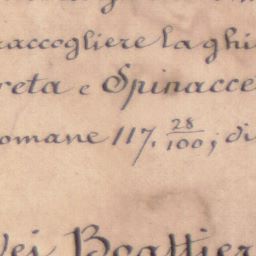 raccogliere la ghi
reta e Spinacce
omane 117. 28/100; di
Dei Boattier